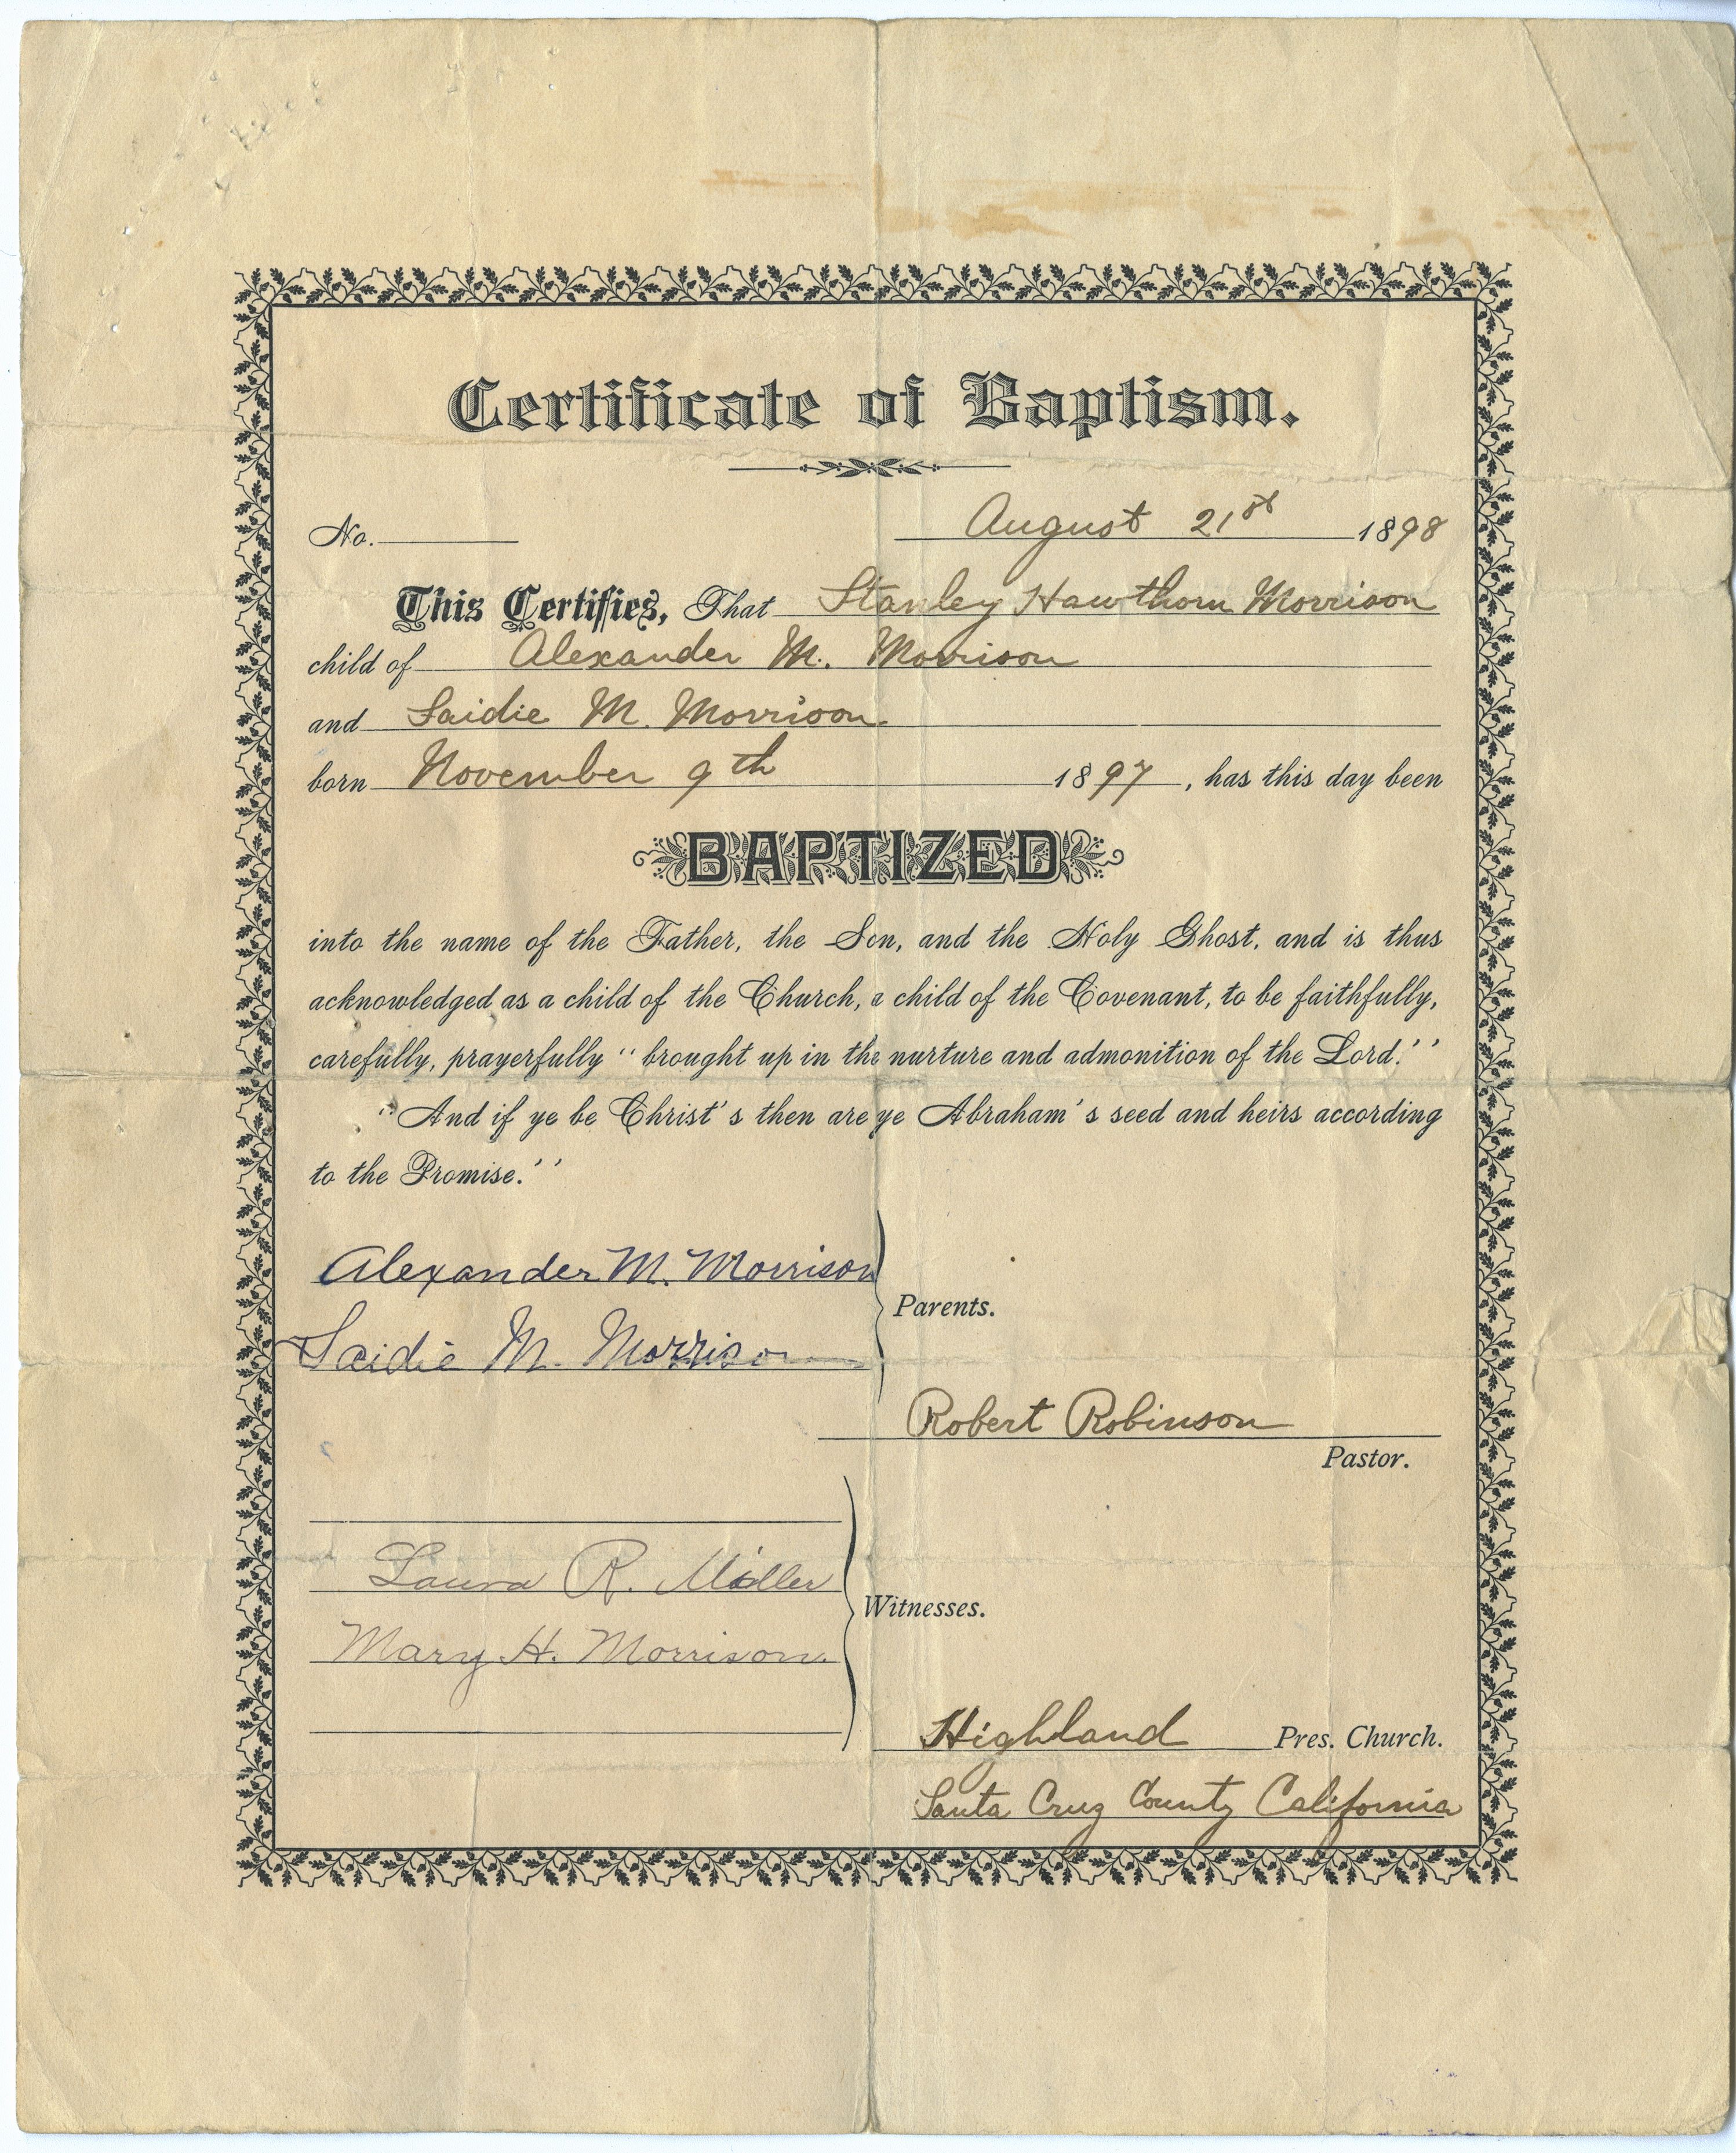 Certificate of Baptism.
No. August 21st 1898
This Certifies, That Stanley Hawthorn Morrison
child of Alexander M. Morrison
and Saidie M. Morrison.
born November 9th 1897, has this day been
BAPTIZED
into the name of the Father, the Son, and the Holy Ghost, and is thus
acknowledged as a child of the Church, a child of the Covenant, to be faithfully,
carefully, prayerfully "brought up in the nurture and admonition of the Lord."
"And if ye be Christ's then are ye Abraham's seed and heirs according
to the Promise."
Alexander M. Morrison
Parents.
Saidie M. Morrison
Robert Robinson
Pastor.
Laura R. Miller
Witnesses.
Mary H. Morrison.
Highland Pres. Church.
Santa Cruz County California